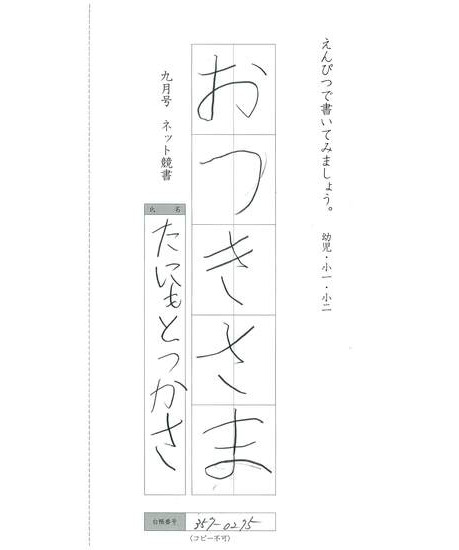 えんぴつで書いてみましょう。 幼児・小一・小二
おつきさま
九月号 ネット競書
氏 名
たにもとつかさ
台帳番号 357-0275
(コピー不可)